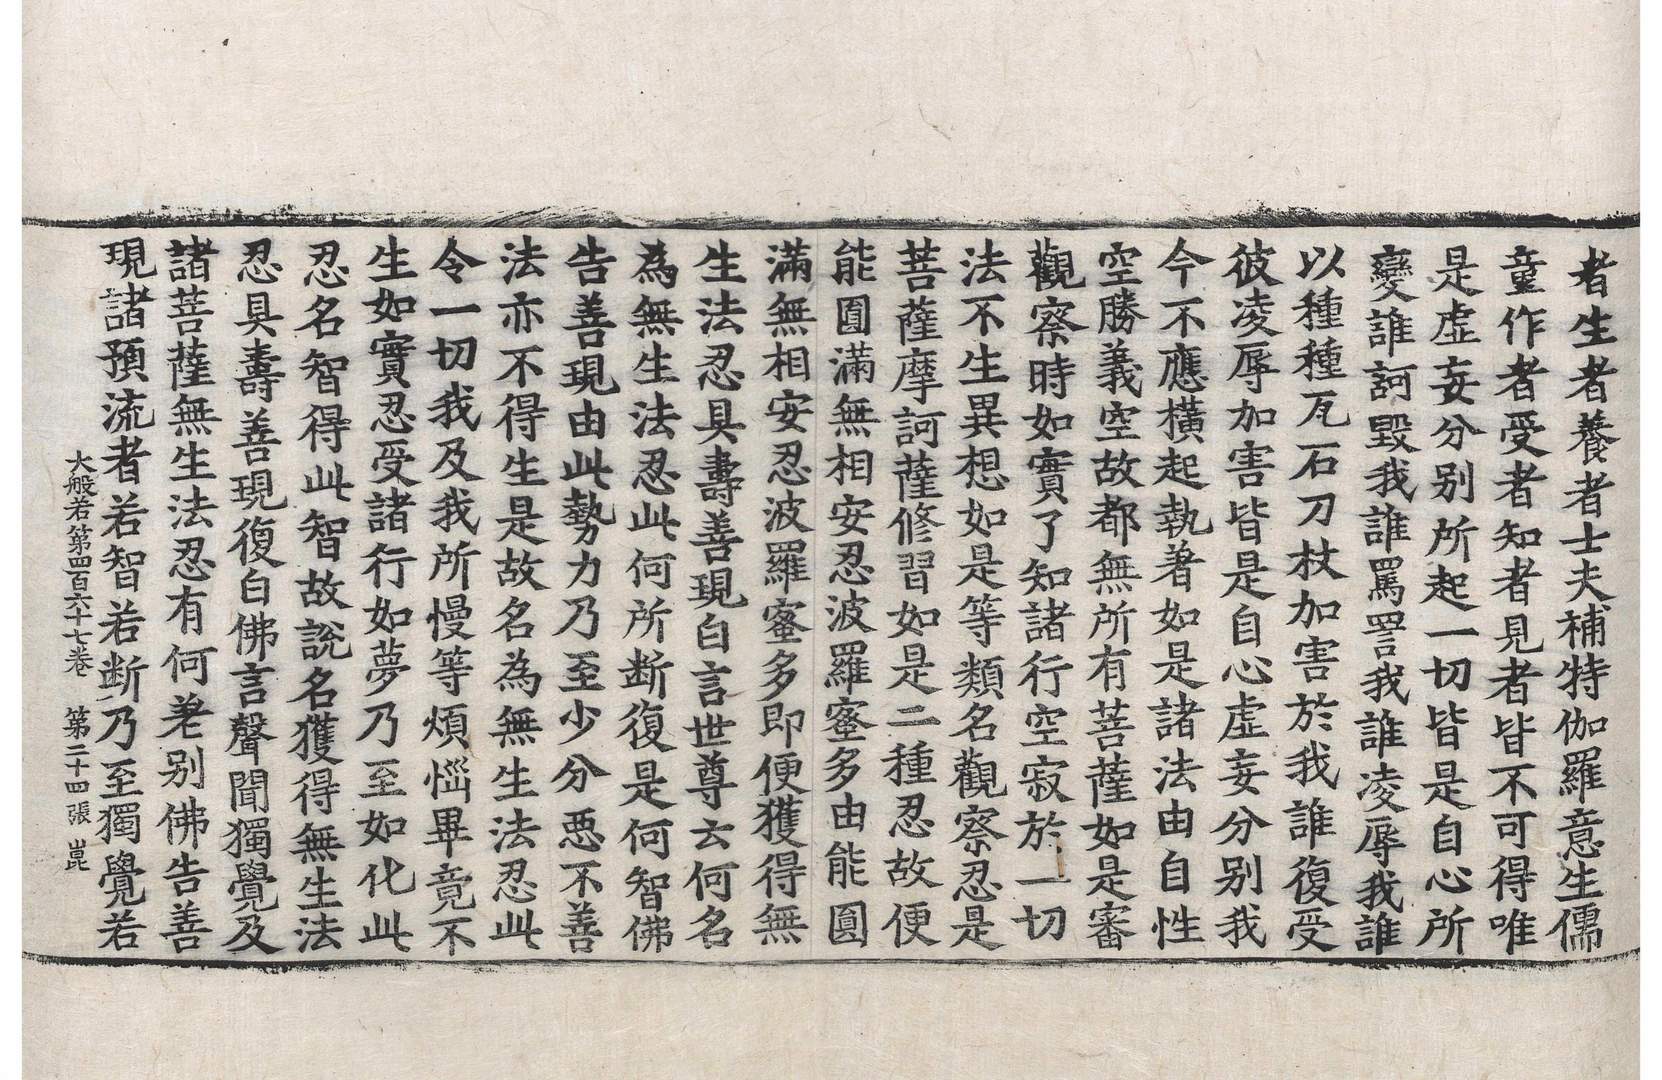 者生者養者士夫補特伽羅意生儒
童作者受者知者見者皆不可得唯
是虛妄分別所起一切皆是自心所
變誰訶毀我誰罵詈我誰凌辱我誰
以種種瓦石刀杖加害於我誰復受
彼凌辱加害皆是自心虛妄分別我
今不應橫起執著如是諸法由自性
空勝義空故都無所有菩薩如是審
觀察時如實了知諸行空寂於一切
法不生異想如是等類名觀察忍是
菩薩摩訶薩修習如是二種忍故便
能圓滿無相安忍波羅蜜多由能圓
滿無相安忍波羅蜜多即便獲得無
生法忍具壽善現白言世尊云何名
為無生法忍此何所断復是何智佛
告善現由此勢力乃至少分惡不善
法亦不得生是故名為無生法忍此
令一切我及我所慢等煩惱畢竟不
生如實忍受諸行如夢乃至如化此
忍名智得此智故說名獲得無生法
忍具壽善現復白佛言聲聞獨覺及
諸菩薩無生法忍有何差別佛告善
現諸預流者若智若断乃至獨覺若
大般若第四百六十七卷　第二十四張　崑